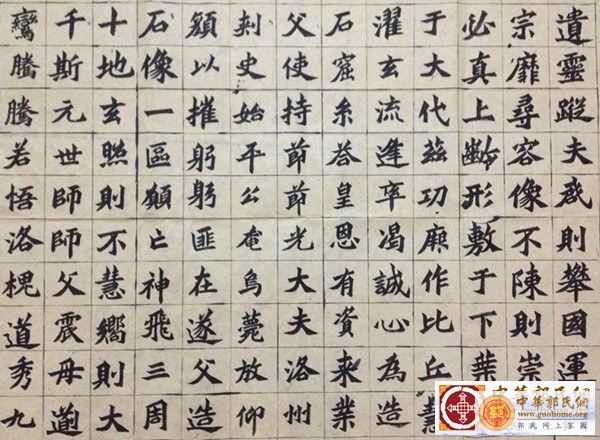 遺靈蹤夫則攀國運
宗靡尋容像不陳則崇
必真上形敷于下葉
于大代茲功厥作比丘慧
濯玄流逢率竭誠心為造
石窟糸答皇恩有資來業
父使持節節光大夫洛州
刺史始平公奄烏薨放仰
顏以摧躬躬匪在遂父造
石像一區願亡神飛三周
十地玄照則不慧嚮則大
千斯元世師師父震母道
鸞騰騰若悟洛槐道秀九
中華郭氏網
www.guohome.org
郭氏网上家園